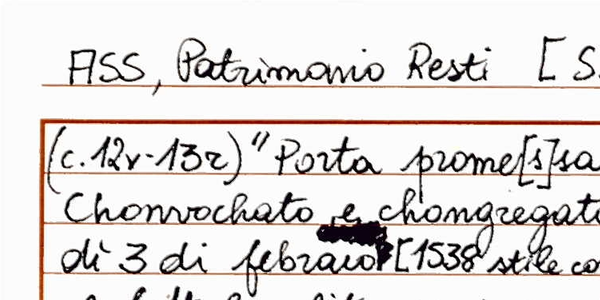 ASS, Patrimonio Resti [ S.
(c.12v-13r) "Porta prome[s]sa
Chonvochato e chongregat
dì 3 di febraio [1538 stile co